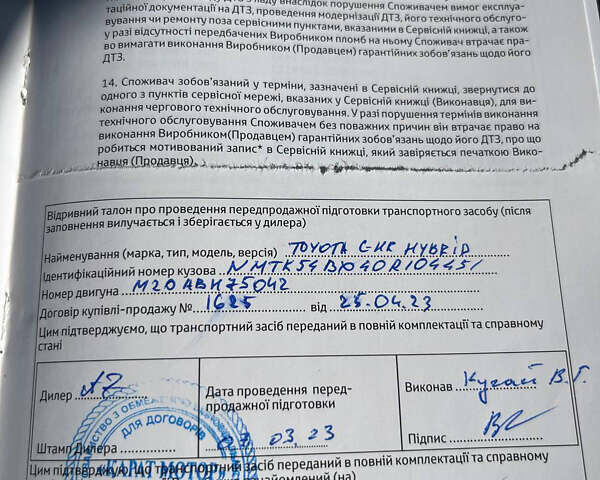 ДТЗ внаслідок порушення Споживачем вимог експлуа-
таційної документації на ДТЗ, проведення модернізації ДТЗ, його технічного обслуго-
вування чи ремонту поза сервісними пунктами, вказаними в Сервісній книжці, а також
у разі відсутності передбачених Виробником пломб на ньому Споживач втрачає пра-
во вимагати виконання Виробником (Продавцем) гарантійних зобов'язань щодо його
ДТЗ.
14. Споживач зобов'язаний у терміни, зазначені в Сервісній книжці, звернутися до
одного з пунктів сервісної мережі, вказаних у Сервісній книжці (Виконавця), для ви-
конання чергового технічного обслуговування. У разі порушення термінів виконання
технічного обслуговування Споживачем без поважних причин він втрачає право на
виконання Виробником(Продавцем) гарантійних зобов'язань щодо його ДТЗ, про що
робиться мотивований запис* в Сервісній книжці, який завіряється печаткою Вико-
навця (Продавця).
Відривний талон про проведення передпродажної підготовки транспортного засобу (після
заповнення вилучається і зберігається у дилера)
Найменування (марка, тип, модель, версія) TOYOTA C-HR HYBRID
Ідентифікаційний номер кузова NMTK54BX40R104451
Номер двигуна M20ABH75042
Договір купівлі-продажу № 1625 від 25.04.23
Цим підтверджуємо, що транспортний засіб переданий в повній комплектації та справному
стані
Дилер AZ
Дата проведення перед-
продажної підготовки
Виконав Кугай В.Г.
Штамп Дилера
03.23
Підпис
ДЛЯ ДОГОВОРІВ
КАРАТ МОТОРС
Цим підтверджую, що транспортний засіб переданий в повній комплектації та справному